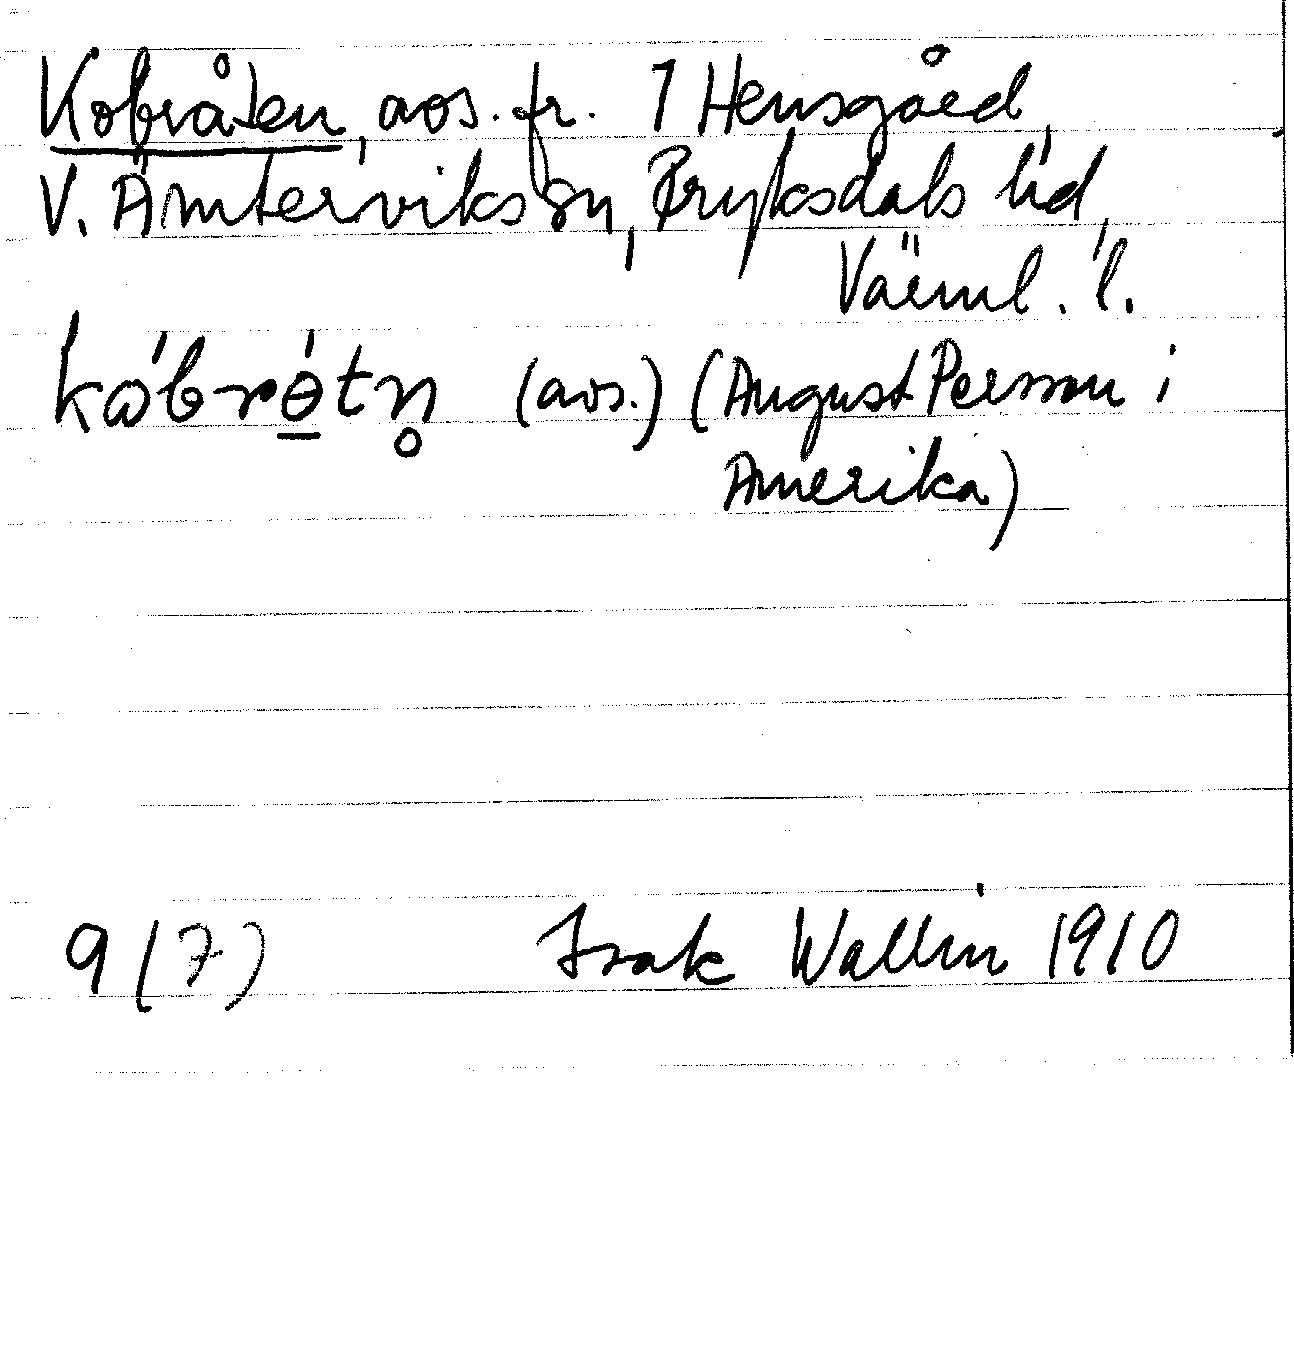 Kobråten, avs. fr. 1 Hensgård,
V. Ämterviks sn, Fryksdals hd,
Värml. l.
kàbrǿtn̥ (avs.) (August Persson i
Amerika)
9 (7) Isak Wallin 1910